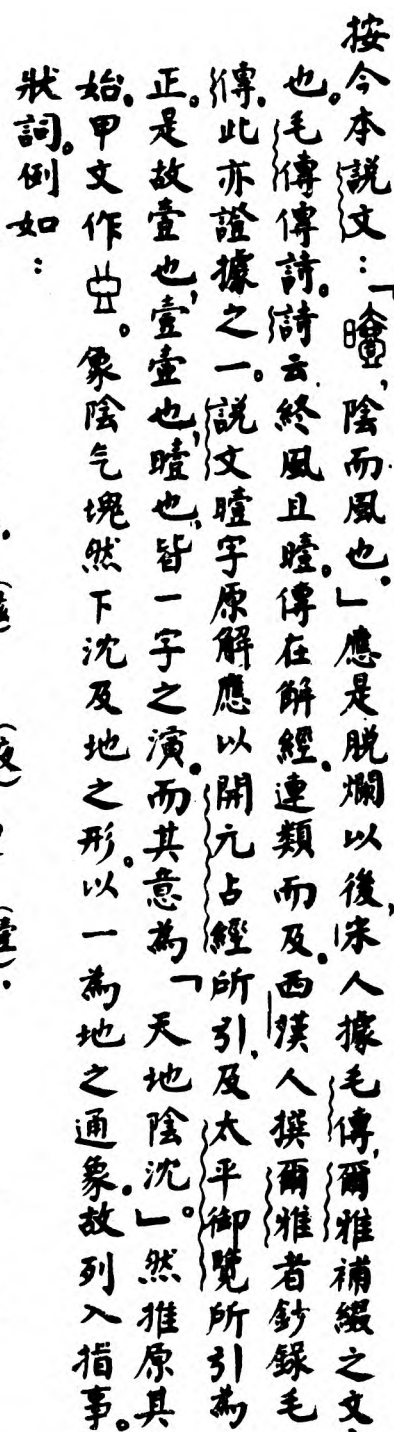 按今本說文：「曀，陰而風也。」應是脫爛以後，宋人據毛傳，爾雅補綴之文
也。毛傳傳詩。詩云終風且曀。傳在解經，連類而及。西漢人撰爾雅者鈔錄毛
傳。此亦證據之一。說文曀字原解應以開元占經所引，及太平御覽所引為
正。是故壹也，壹壺也，曀也，皆一字之演。而其意為「天地陰沈」。然推原其
始。甲文作。象陰气塊然下沈及地之形。以一為地之通象。故列入指事。
狀詞。例如：